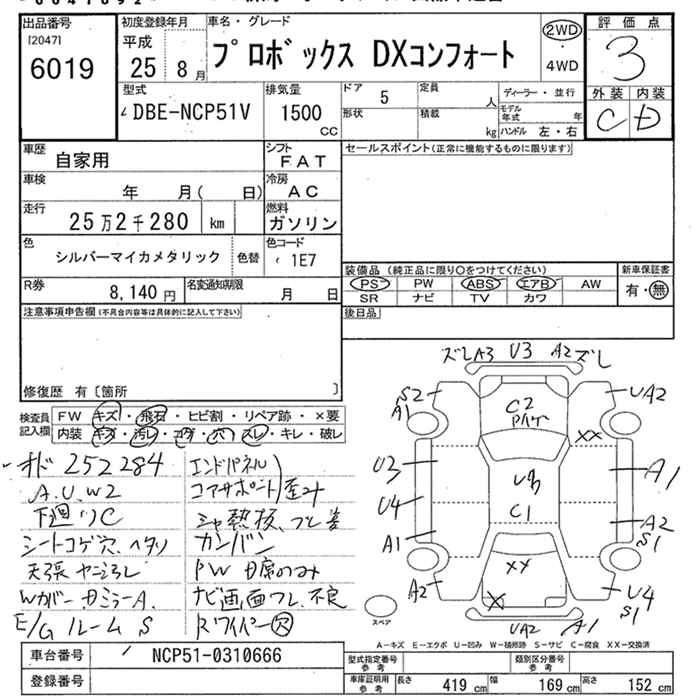 出品番号
[2047]
6019
初度登録年月
平成
25年 8月
車名・グレード
プロボックス DXコンフォート
2WD
・
4WD
評価点
3
外装 内装
C D
型式
DBE-NCP51V
排気量
1500
CC
ドア 5
定員 人
形状
積載 kg
ディーラー・並行
モデル年式 年
ハンドル 左・右
車歴
自家用
シフト
FAT
セールスポイント(正常に機能するものに限ります)
車検
年 月( 日)
冷房
AC
走行
25万2千280 km
燃料
ガソリン
色
シルバーマイカメタリック
色替
色コード
1E7
R券
8,140円
名変通知期限
月 日
装備品(純正品に限り○をつけてください)
新車保証書
PS PW ABS エアB AW
有・無
SR ナビ TV カワ
注意事項申告欄(不具合内容等は具体的に記入して下さい)
後日品
修復歴 有〔箇所 〕
検査員
記入欄
FW キズ・飛石・ヒビ割・リペア跡・×要
内装 キズ・汚レ・コゲ・穴・スレ・キレ・破レ
オド 252284
A.U.W2
下廻リC
シートコゲ穴、ヘタリ
天張ヤニヨゴレ
Wカバー・サミラーA.
E/Gルーム S
エンドパネル
コアサポート 歪み
シャ熱板、フレ差
カンバン
PW 日席のみ
ナビ画面フレ、不良
Rワイパー穴
ズレA3 U3 A2ズレ
S2
A1
UA2
C2
XX
U3
U3
A1
U4
C1
A2
S1
A1
XX
A2
X
U4
S1
UA2 A1
スペア
A－キズ E－エクボ U－凹み W－補修跡 S－サビ C－腐食 XX－交換済
車台番号
NCP51-0310666
登録番号
型式指定番号
参考
類別区分番号
参考
車庫証明用
参考
長さ 419 cm
幅 169 cm
高さ 152 cm